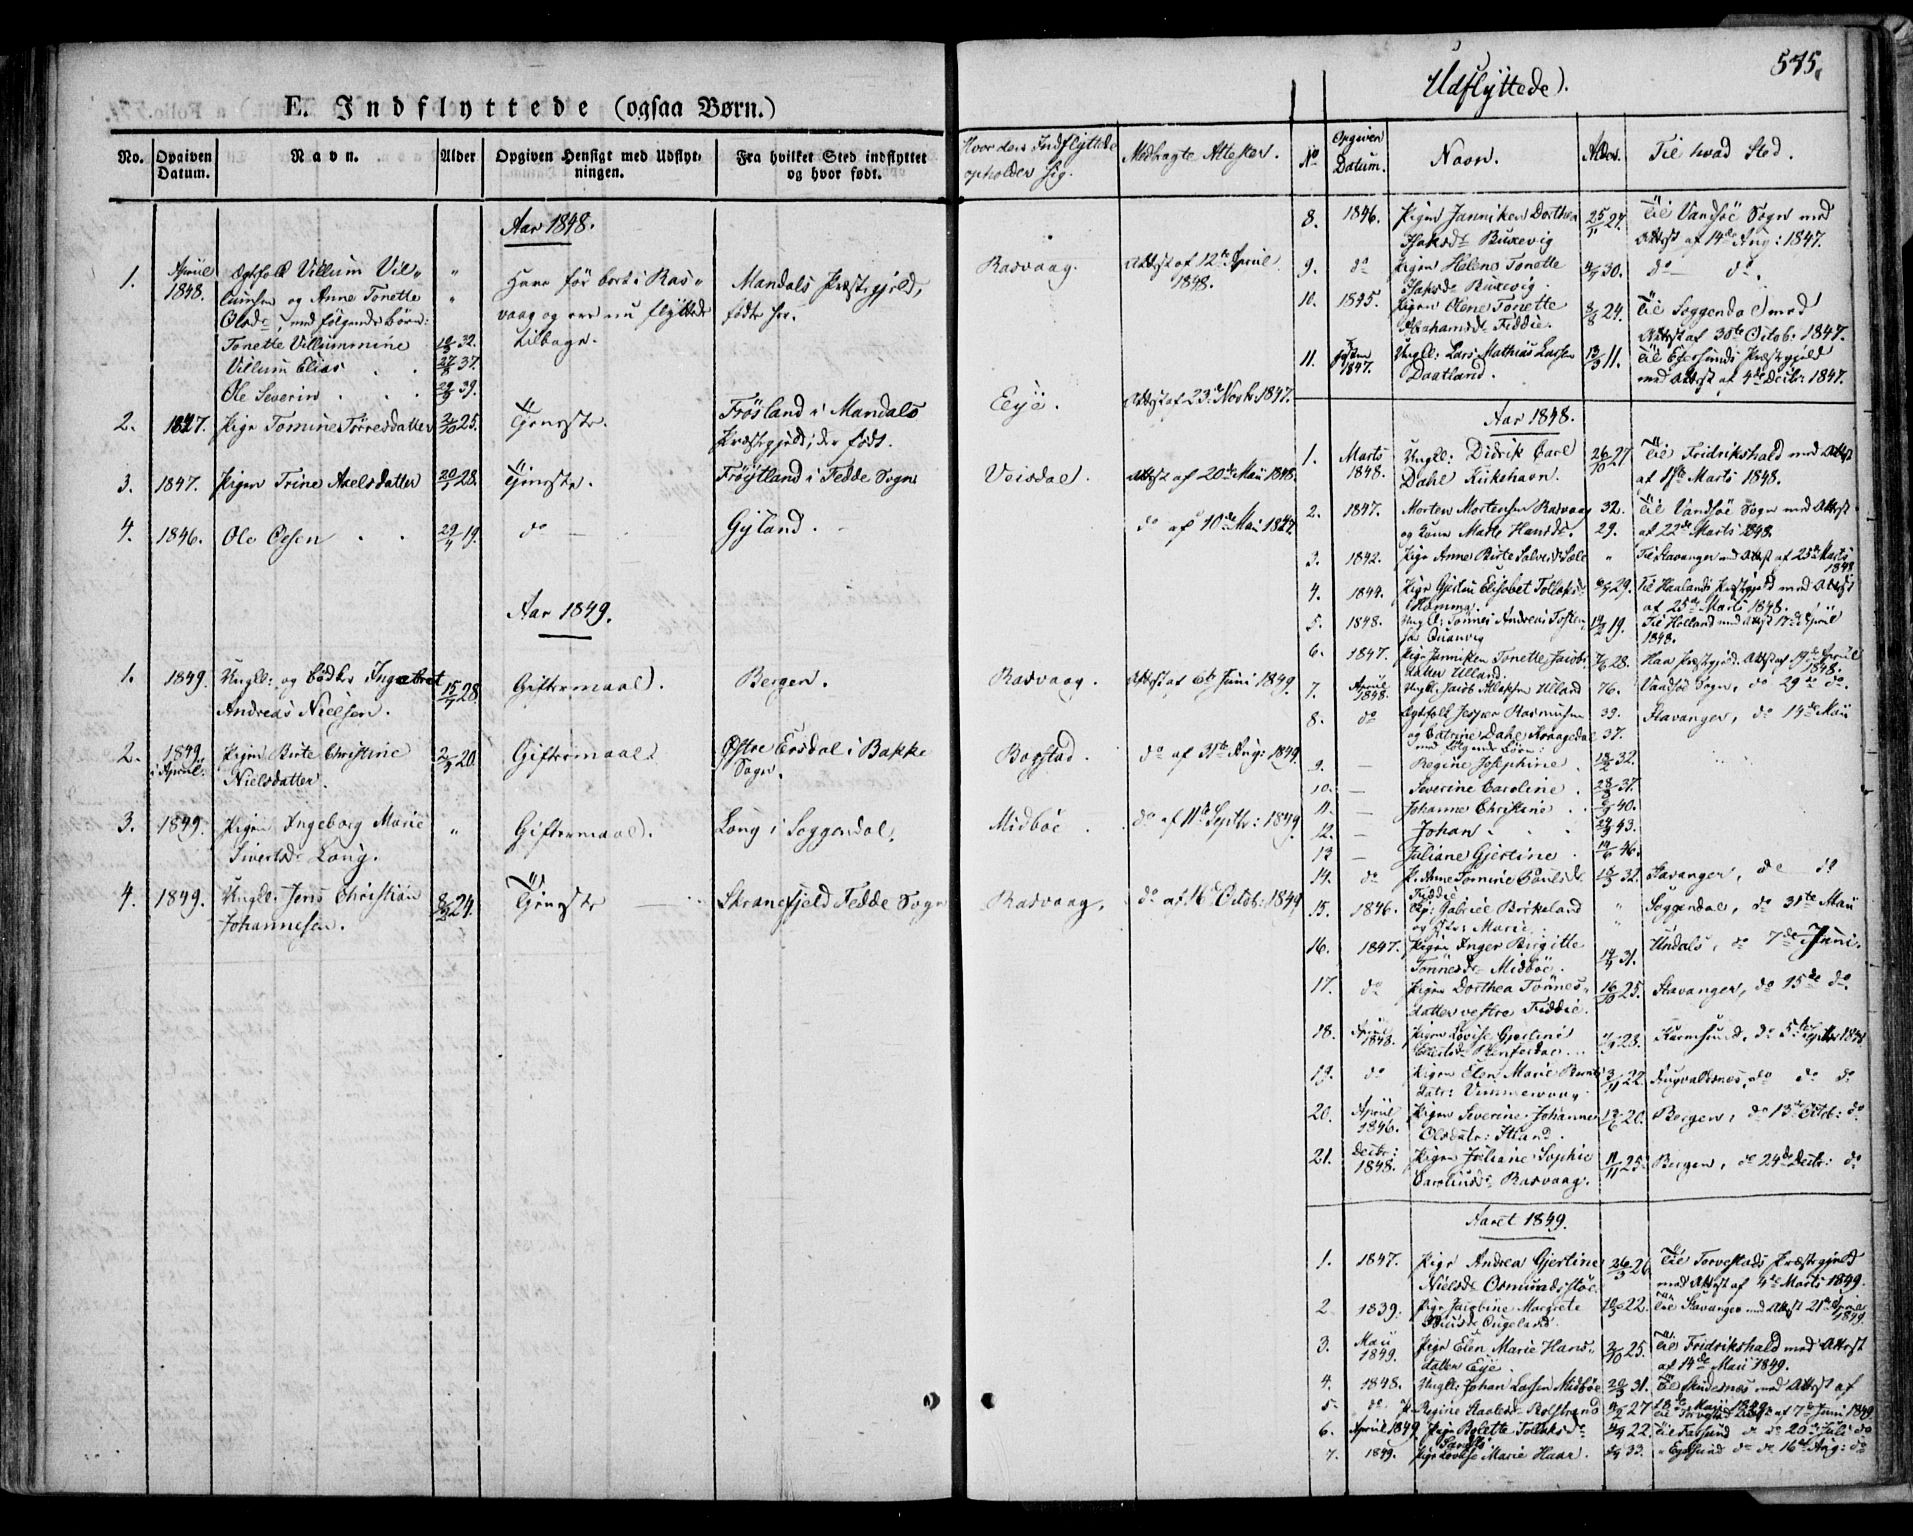 575.
E. Indflyttede (ogsaa Børn.)
No. Opgiven Datum. Navn. Alder Opgiven Hensigt med Udflytningen. Fra hvilket Sted indflyttet og hvor født. Hvor den Indflyttede opholder sig. Medbragte Attester.
Aar 1848.
1. April 1848. Ægtfolk Villum Vil-
lumsen og Anne Tonette
Olsdr, med følgende Børn:
Tonette Villummine 32.
Villum Elias 37.
Ole Severin 39.
Have før boet i Ras-
vaag og ere nu flyttede
tilbage.
Mandals Præstegjeld,
fødte her.
Rasvaag. Attest af 12te April
1848.
2. 1847. Pige Tomine Torresdatter 2/10 25. Tjeneste. Frøsland i Mandals
Præstegjeld, der født. Eeye. Attest af 23de Novbr 1847.
3. 1847. Pigen Trine Axelsdatter 28. Tjeneste. Frøytland i Fedde Sogn Veisdal. Attest af 20de Mai 1848.
4. 1846. Ole Olsen 19. do Gyland. do af 10de Mai 1847.
Aar 1849.
1. 1849. Ungk: og Bødker Ingebret
Andreas Nielsen. 15/7 28. Giftermaal. Bergen. Rasvaag. Attest af 6te Juni 1849.
2. 1849 i April. Pigen Birte Christine
Nielsdatter. 2/3 20. Giftermaal. Østre Ersdal i Bakke
Sogn. Bogstad. do af 31te Aug: 1849.
3. 1849. Pigen Ingeborg Marie
Sivertsdr Long. " Giftermaal. Long i Soggendal. Midbøe. do af 11te Septbr: 1849.
4. 1849. Ungk: Jens Christian
Johannesen. 8/2 24. Tjeneste Skranefjeld Fedde Sogn Rasvaag. do af 16de Octob: 1849
Udflyttede.
No Opgiven Datum. Navn. Alder. Til hvad Sted.
8. 1846. Pigen Janniken Dorthea
Isaksdr Buxevig 25/11 24. Til Vandsøe Sogn med
Attest af 14de Aug: 1847.
9. do Pigen Helene Tonette
Isaksdr Buxevig. 30. do do.
10. 1845. Pigen Olene Tonette
Abrahamsdr Feddie. 8/8 24. Til Soggendal med
Attest af 30te Octob: 1847.
11. Høsten 1847. Ungk: Lars Mathias Larsen
Daatland. 13/3 11. Til Egersunds Præstegjeld
med Attest af 4de Decbr: 1847.
Aar 1848.
1. Marts 1848. Ungk: Didrik Carl
Dahl Kirkehavn. 26/10 27. Til Fridrikshald med Attest
af 1ste Marts 1848.
2. 1847. Morten Mortensen Rasvaag 32.
og Kone Marte Hansdr. 29. Til Vandsøe Sogn med Attest
af 22de Marts 1848.
3. 1842. Pige Anne Birte Salvesdr " Til Stavanger med Attest af 25de Marts
1848
4. 1844. Pige Gjertru Elisabet Tollaksdr
29. Til Haalands Præstegjeld med Attest
af 25de Marts 1848.
5. 1848. Ungk: Tønnes Andreas Tosten-
sen 19. Til Holland med Attest 17de April
1848.
6. 1847. Pige Janniken Tonette Jacobs-
datter Ulland. 28. Haa Præstegjeld. Attest af 19de April
1848.
7. April 1848. Ungk: Jacob Ulland 76. Vandsøe Sogn, do 29de do.
8. do Ægtfolk Jesper Rasmusen 39.
og Catrine Dahl 37.
med følgende Børn: Stavanger, do 14de Mai
9. — Regine Josephine. 32.
10. — Severine Caroline. 37.
11. — Johanne Christine. 40.
12. — Johan 43.
13 — Juliane Gjertine. 46.
14. do P. Anne Tomine Poulsdr
Feddie 32. Stavanger, do do
15. 1846. Gabriel Birkeland
og Marie. " Soggendal, do 31te Mai
16. 1847. Pigen Inger Birgitte
Tønnesdr Midbøe. 31. Undals, do 7de Juni.
17. do Pigen Dorthea Tønnes-
datter vestre Feddie. 16/10 25. Stavanger, do 15de do.
18. April 1848. Pigen Lovise Gjertine
23. Karmsund, do 5te Septbr 1848
19. do Pigen Elen Marie Bernt
datr: 3/11 22. Augvaldsnes, do do do
20. April 1846. Pigen Severine Johanne
Olsdatr: 20. Bergen, do 13de Octob: do
21. Decbr: 1848. Pigen Juliane Sophie
Carolinesdr Rasvaag. 11/11 25. Bergen, do 24de Decbr: do
Aaret 1849.
1. 1847. Pige Andrea Gjertine
Nielsdr Osmundsstøe. 26/3 26 Til Torvestads Præstegjeld
med Attest af 4de Marts 1849.
2 1839. Pige Jacobine Margrete
22. Til Stavanger med Attest 21de April
1849
3. Mai 1849. Pige Elen Marie Hans-
datter Eeye. 2/10 25. Til Fridrikshald med Attest
af 14de Mai 1849.
4. 1848. Ungk: Johan Larsen Midbøe 31. Til Skudesnes med Attest af
18de Mai 1849
5. do P. Regine Rolfstrand 27 Til Torvestad Attest af 7de Juni 1849
6 April 1849 Pige Bolette Tollaksdr
22 Til Farsund do do 20de Juli do
7. 1849. Pige Lovise Marie Haar. 33. " Egersund do do 16de Aug: do